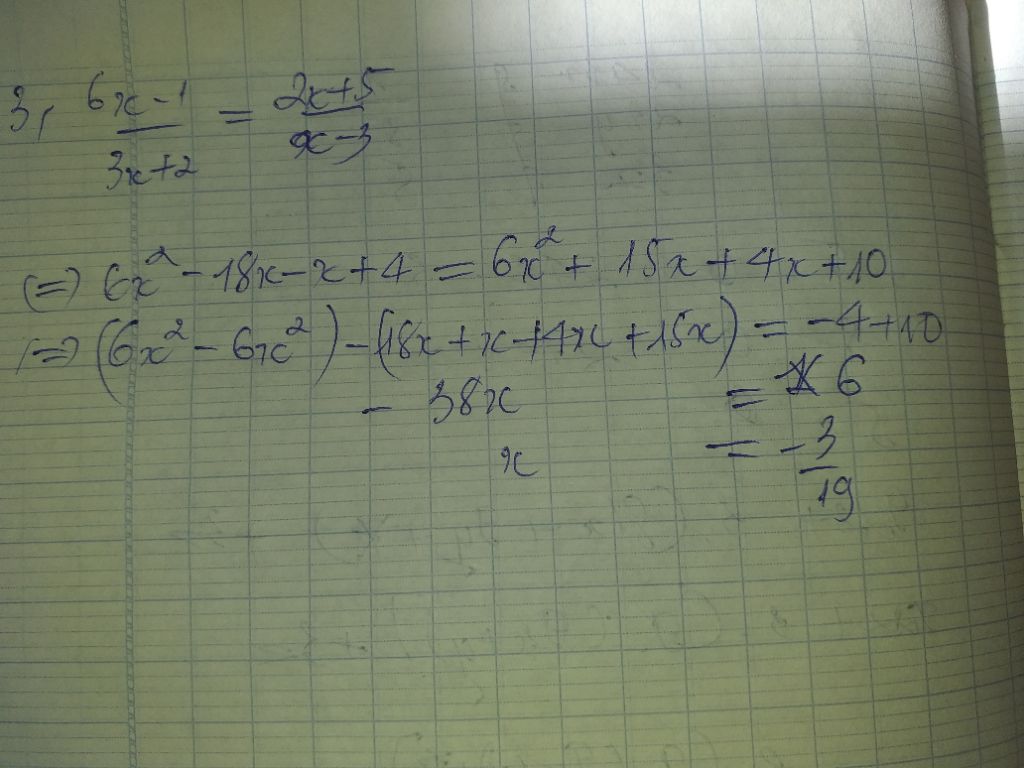 3, (6x-1)/(3x+2) = (2x+5)/(x-3)
(=) 6x² - 18x - x + 4 = 6x² + 15x + 4x + 10
(=) (6x² - 6x²) - (18x + x + 4x + 15x) = -4 + 10
- 38x = 6
x = -3/19